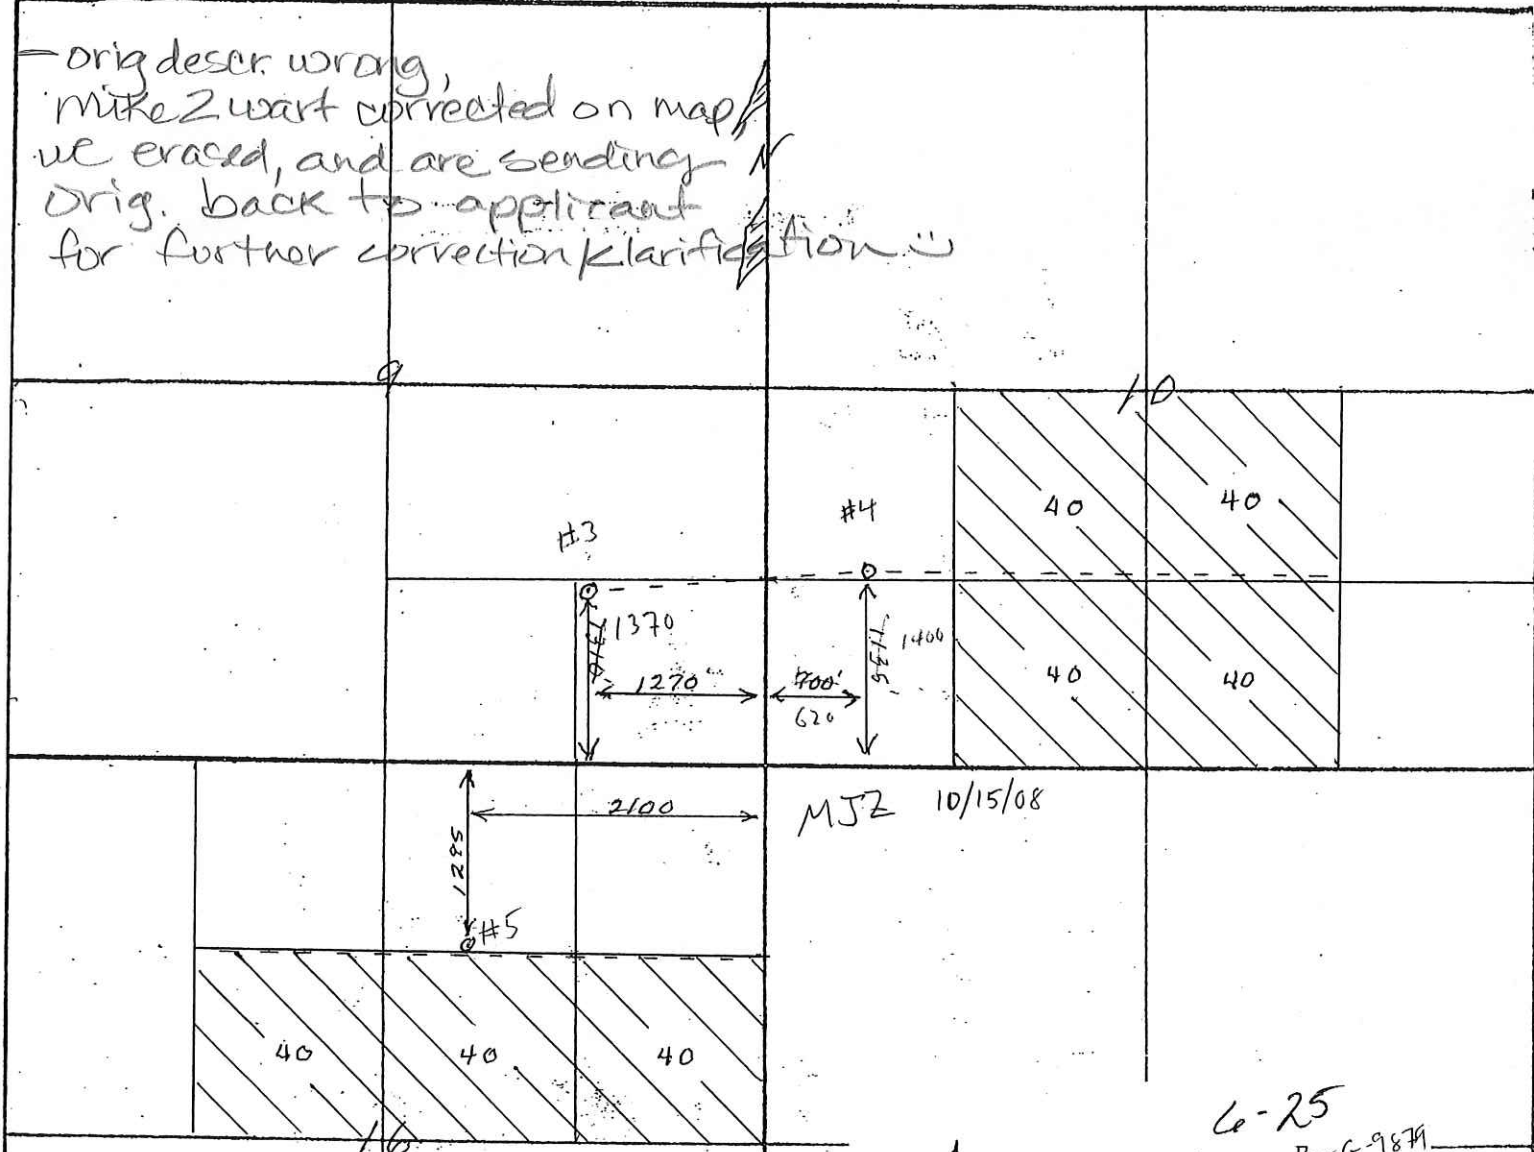 - orig descr. wrong,
Mike Zwart corrected on map,
we erased, and are sending
orig. back to applicant
for further correction/klarification
N
9
10
40 40
#4
#3
1370
1310
1400
1135'
40 40
1270
700'
620
2100
MJZ 10/15/08
1285
#5
40 40 40
16
G-9879